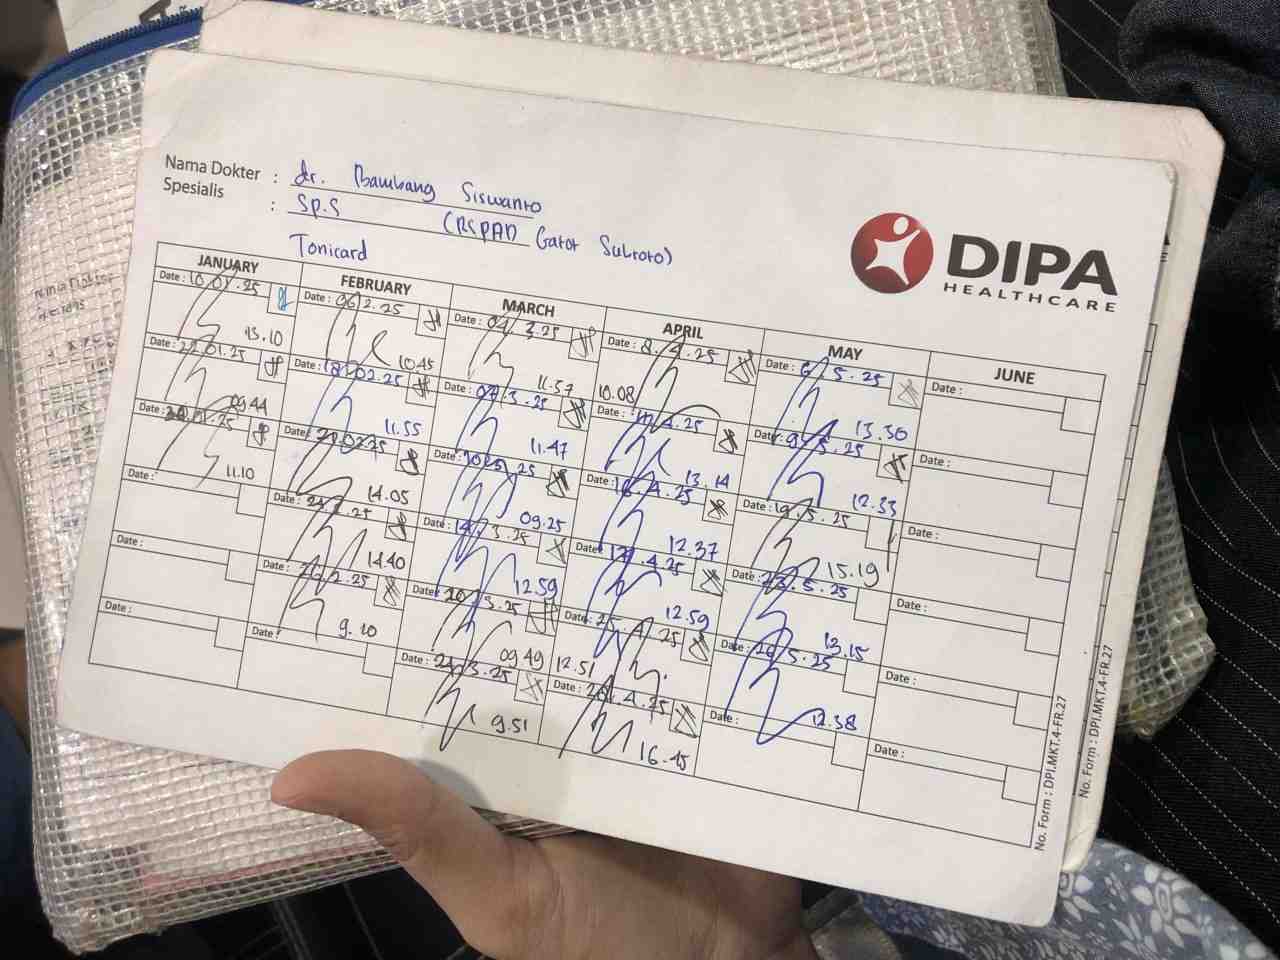 Nama Dokter : dr. Bambang Siswanto
Spesialis : Sp.S (RSPAD Gatot Subroto)
Tonicard
DIPA
HEALTHCARE
JANUARY
Date : 10.01.25
13.10
Date : 22.01.25
09.44
Date :
11.10
Date :
Date :
Date :
FEBRUARY
Date : 06.2.25
10.45
Date : 18.02.25
11.55
Date : 20.02.25
14.05
Date :
14.40
Date : 26.2.25
9.10
Date :
MARCH
Date : 04.3.25
11.57
Date : 07.3.25
11.47
Date :
09.25
Date : 14.3.25
12.59
Date : 20.3.25
09.49
Date : 24.3.25
9.51
APRIL
Date : 8.4.25
10.08
Date :
13.14
Date : 16.4.25
12.37
Date : 17.4.25
12.59
Date :
12.51
Date :
16.45
MAY
Date : 6.5.25
13.30
Date : 9.5.25
12.33
Date : 19.5.25
15.19
Date : 23.5.25
13.15
Date : 26.5.25
12.38
Date :
JUNE
Date :
Date :
Date :
Date :
Date :
Date :
No. Form : DPI.MKT.4-FR.27
No. Form : DPI.MKT.4-FR.27